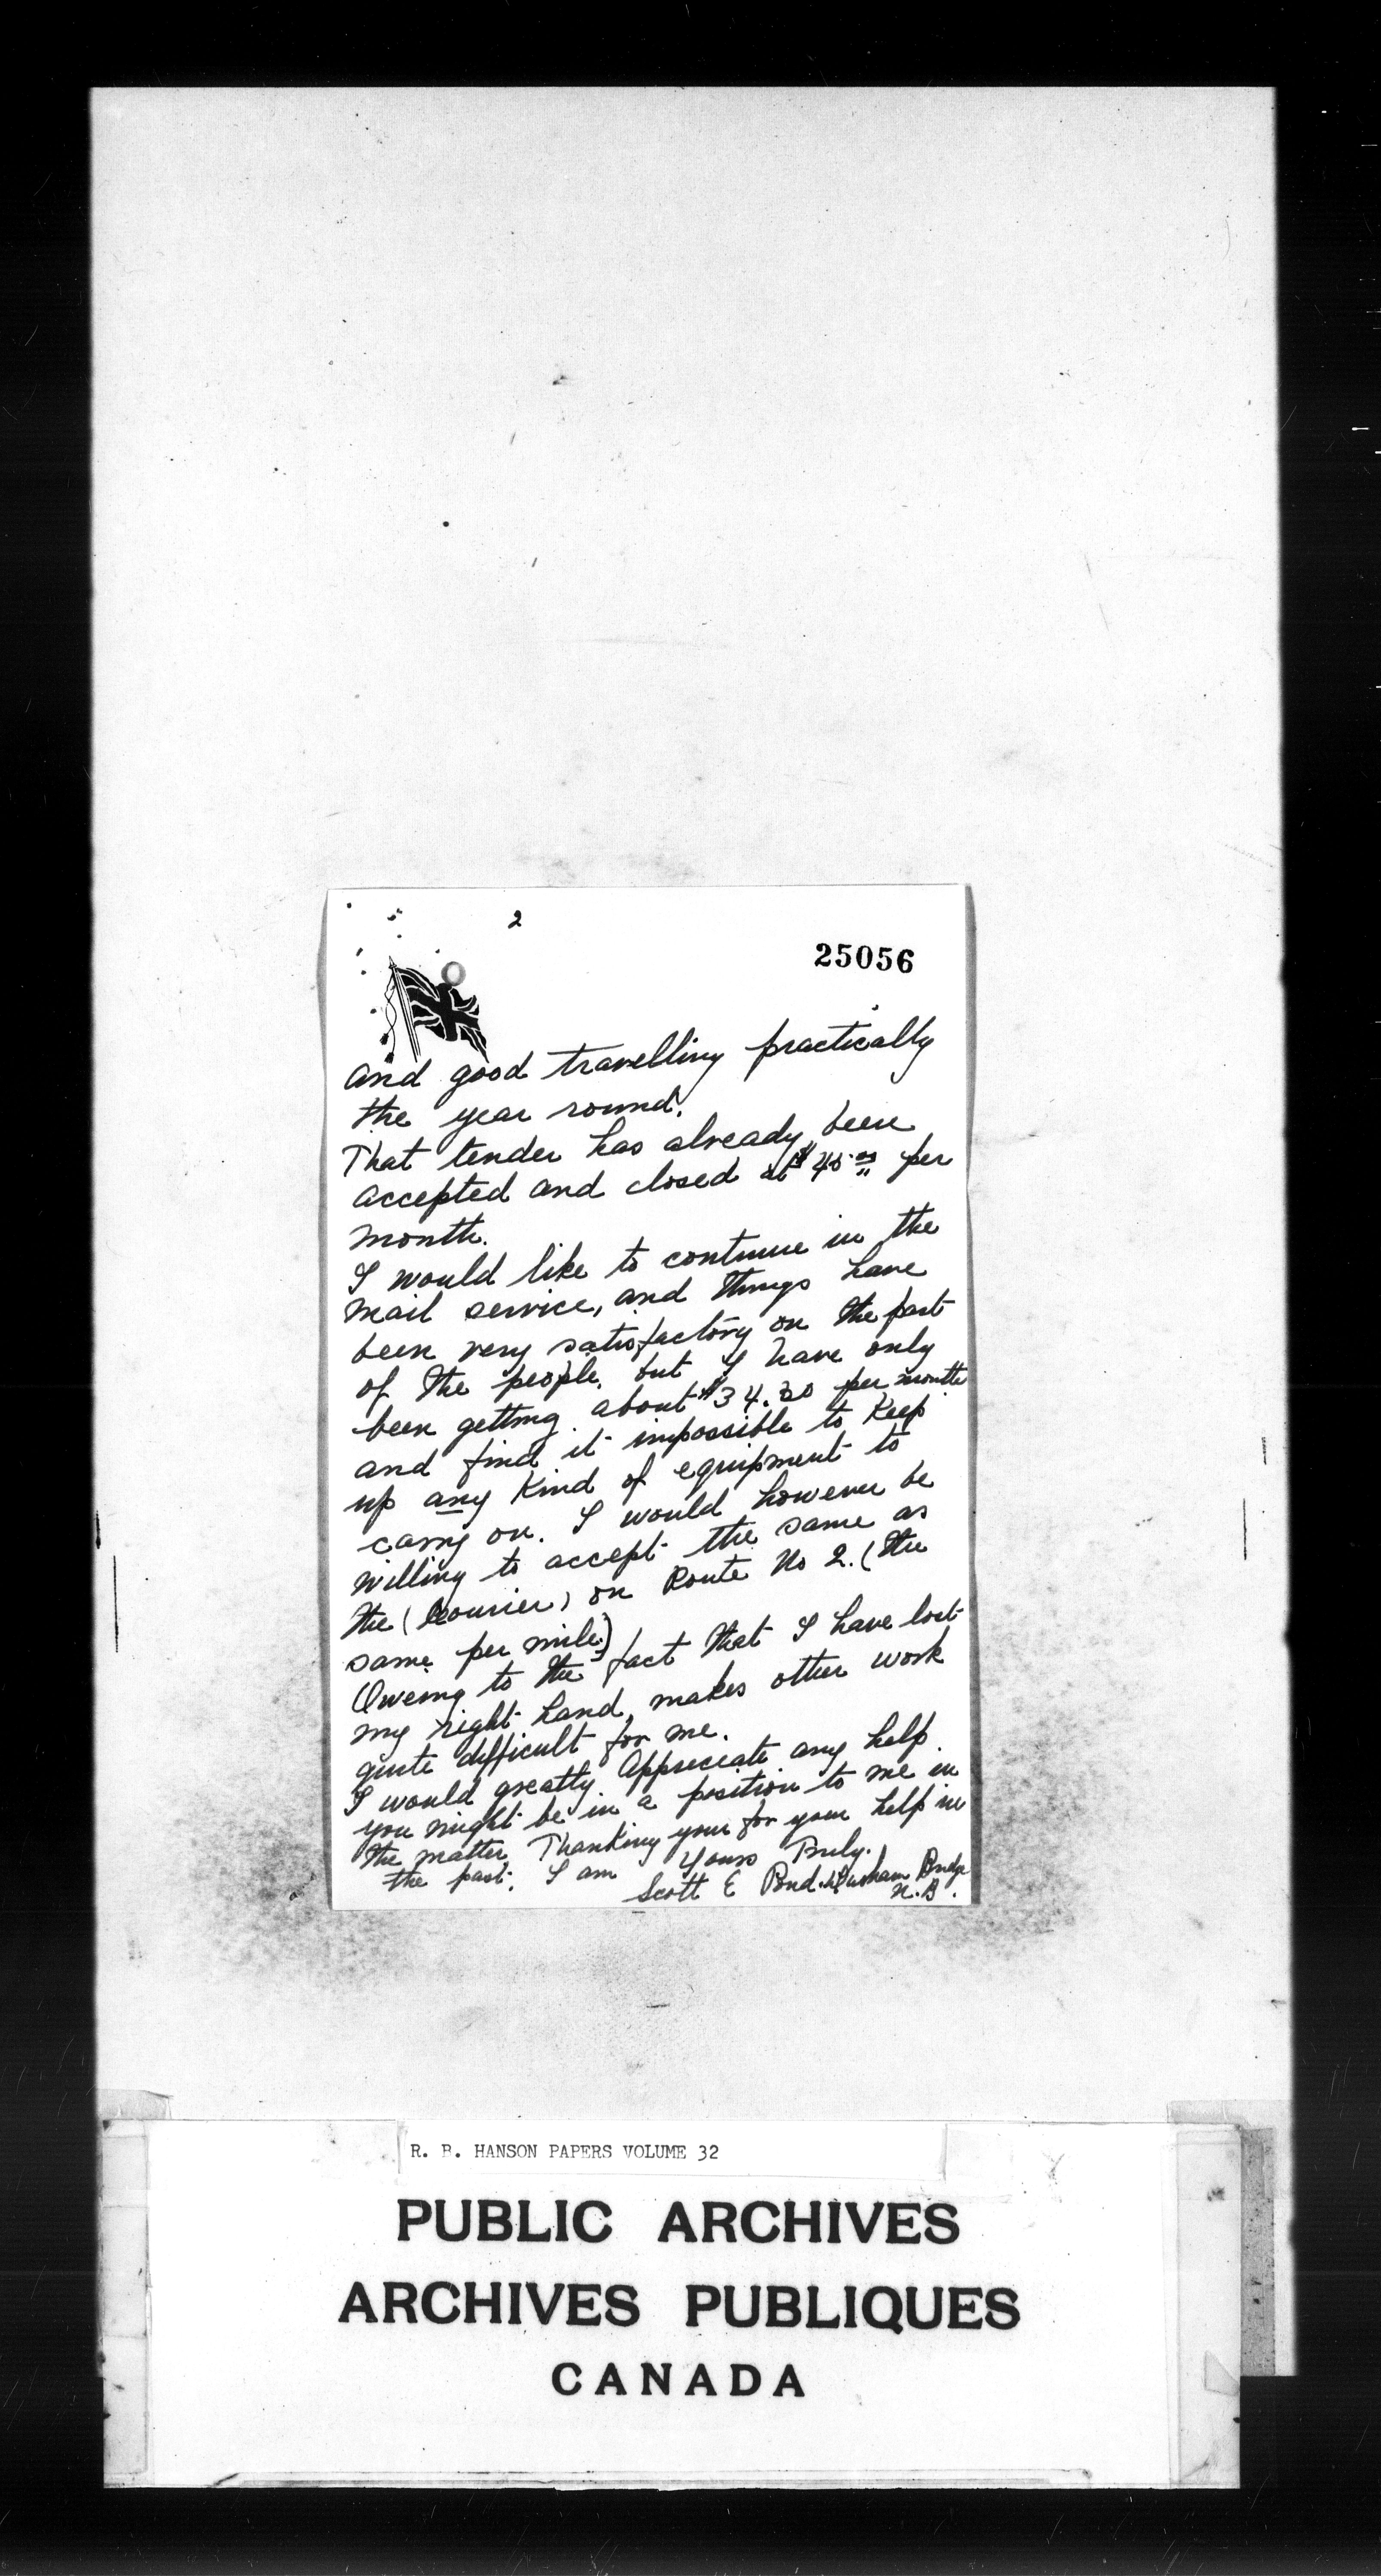 2
25056
and good travelling practically
the year round.
That tender has already been
accepted and closed at $45.00 per
month.
I would like to continue in the
mail service, and things have
been very satisfactory on the part
of the people, but I have only
been getting about $34.30 per month
and find it impossible to keep
up any kind of equipment to
carry on. I would however be
willing to accept the same as
the (Courier) on Route No 2. (the
same per mile)
Oweing to the fact that I have lost
my right hand, makes other work
quite difficult for me.
I would greatly appreciate any help
you might be in a position to me in
the matter. Thanking your for your help in
the past. I am Yours Truly.
Scott E Pond. Durham Bridge
N.B.
R. B. HANSON PAPERS VOLUME 32
PUBLIC ARCHIVES
ARCHIVES PUBLIQUES
CANADA